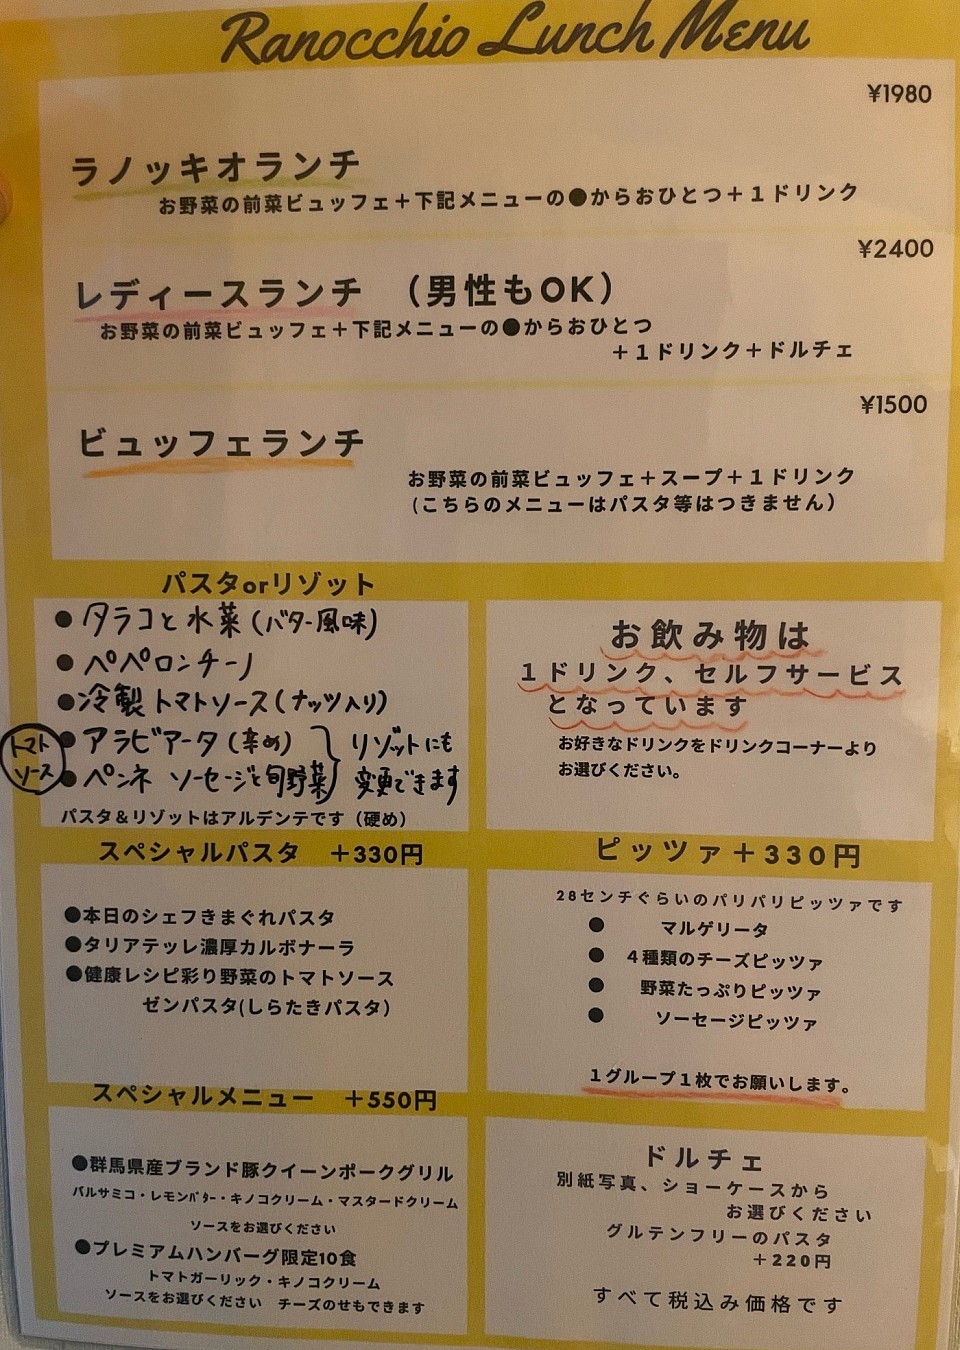 Ranocchio Lunch Menu
¥1980
ラノッキオランチ
お野菜の前菜ビュッフェ＋下記メニューの●からおひとつ＋１ドリンク
¥2400
レディースランチ （男性もOK）
お野菜の前菜ビュッフェ＋下記メニューの●からおひとつ
＋１ドリンク＋ドルチェ
¥1500
ビュッフェランチ
お野菜の前菜ビュッフェ＋スープ＋１ドリンク
(こちらのメニューはパスタ等はつきません）
パスタorリゾット
● タラコと水菜（バター風味）
● ペペロンチーノ
●冷製トマトソース（ナッツ入り）
トマトソース
● アラビアータ（辛め）
● ペンネ ソーセージと旬野菜
リゾットにも
変更できます
パスタ＆リゾットはアルデンテです（硬め）
お飲み物は
１ドリンク、セルフサービス
となっています
お好きなドリンクをドリンクコーナーより
お選びください。
スペシャルパスタ ＋330円
●本日のシェフきまぐれパスタ
●タリアテッレ濃厚カルボナーラ
●健康レシピ彩り野菜のトマトソース
ゼンパスタ(しらたきパスタ）
ピッツァ＋330円
28センチぐらいのパリパリピッツァです
● マルゲリータ
● ４種類のチーズピッツァ
● 野菜たっぷりピッツァ
● ソーセージピッツァ
１グループ１枚でお願いします。
スペシャルメニュー ＋550円
●群馬県産ブランド豚クイーンポークグリル
バルサミコ・レモンバター・キノコクリーム・マスタードクリーム
ソースをお選びください
●プレミアムハンバーグ限定10食
トマトガーリック・キノコクリーム
ソースをお選びください チーズのせもできます
ドルチェ
別紙写真、ショーケースから
お選びください
グルテンフリーのパスタ
＋220円
すべて税込み価格です